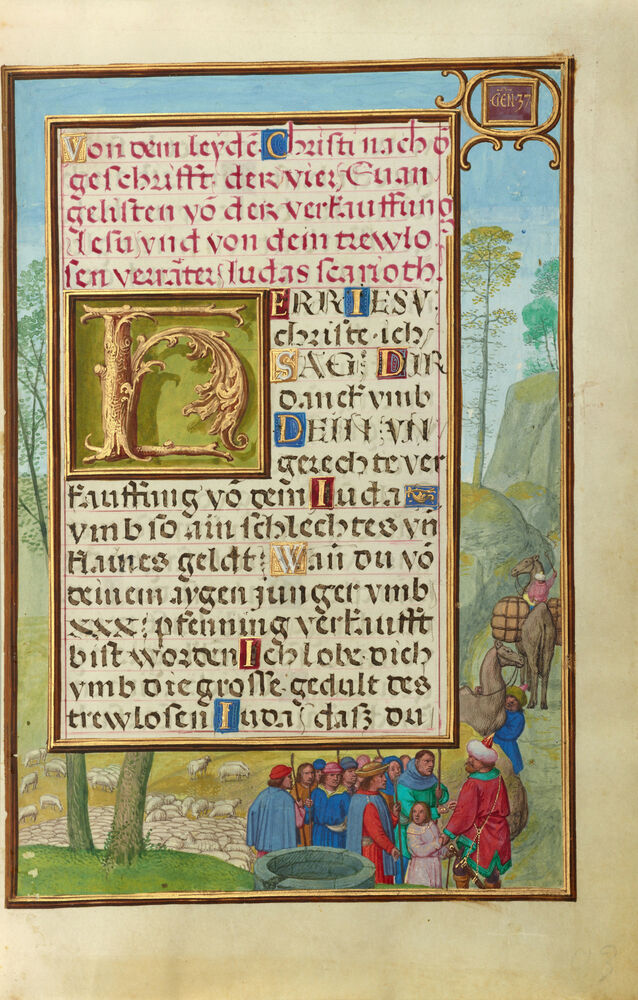 GEN·37
Von dem leydē Christi nach d̄
geschrifft der vier Euan
gelisten vō der verkauffung
Iesu vnd von dem trewlo
sen verräter Iudas scarioth.
HERR IESV
christe·ich
SAG DIR
danck vmb
DEIN VN
gerechte ver
kauffung vō dem Iuda
vmb so ain schlechtes vn̄
klaines geldt: Wan̄ du vō
deinem aygen junger vmb
xxx: pfenning verkaufft
bist worden Ich lobe dich
vmb die grosse gedult des
trewlosen Iuda, dasz du